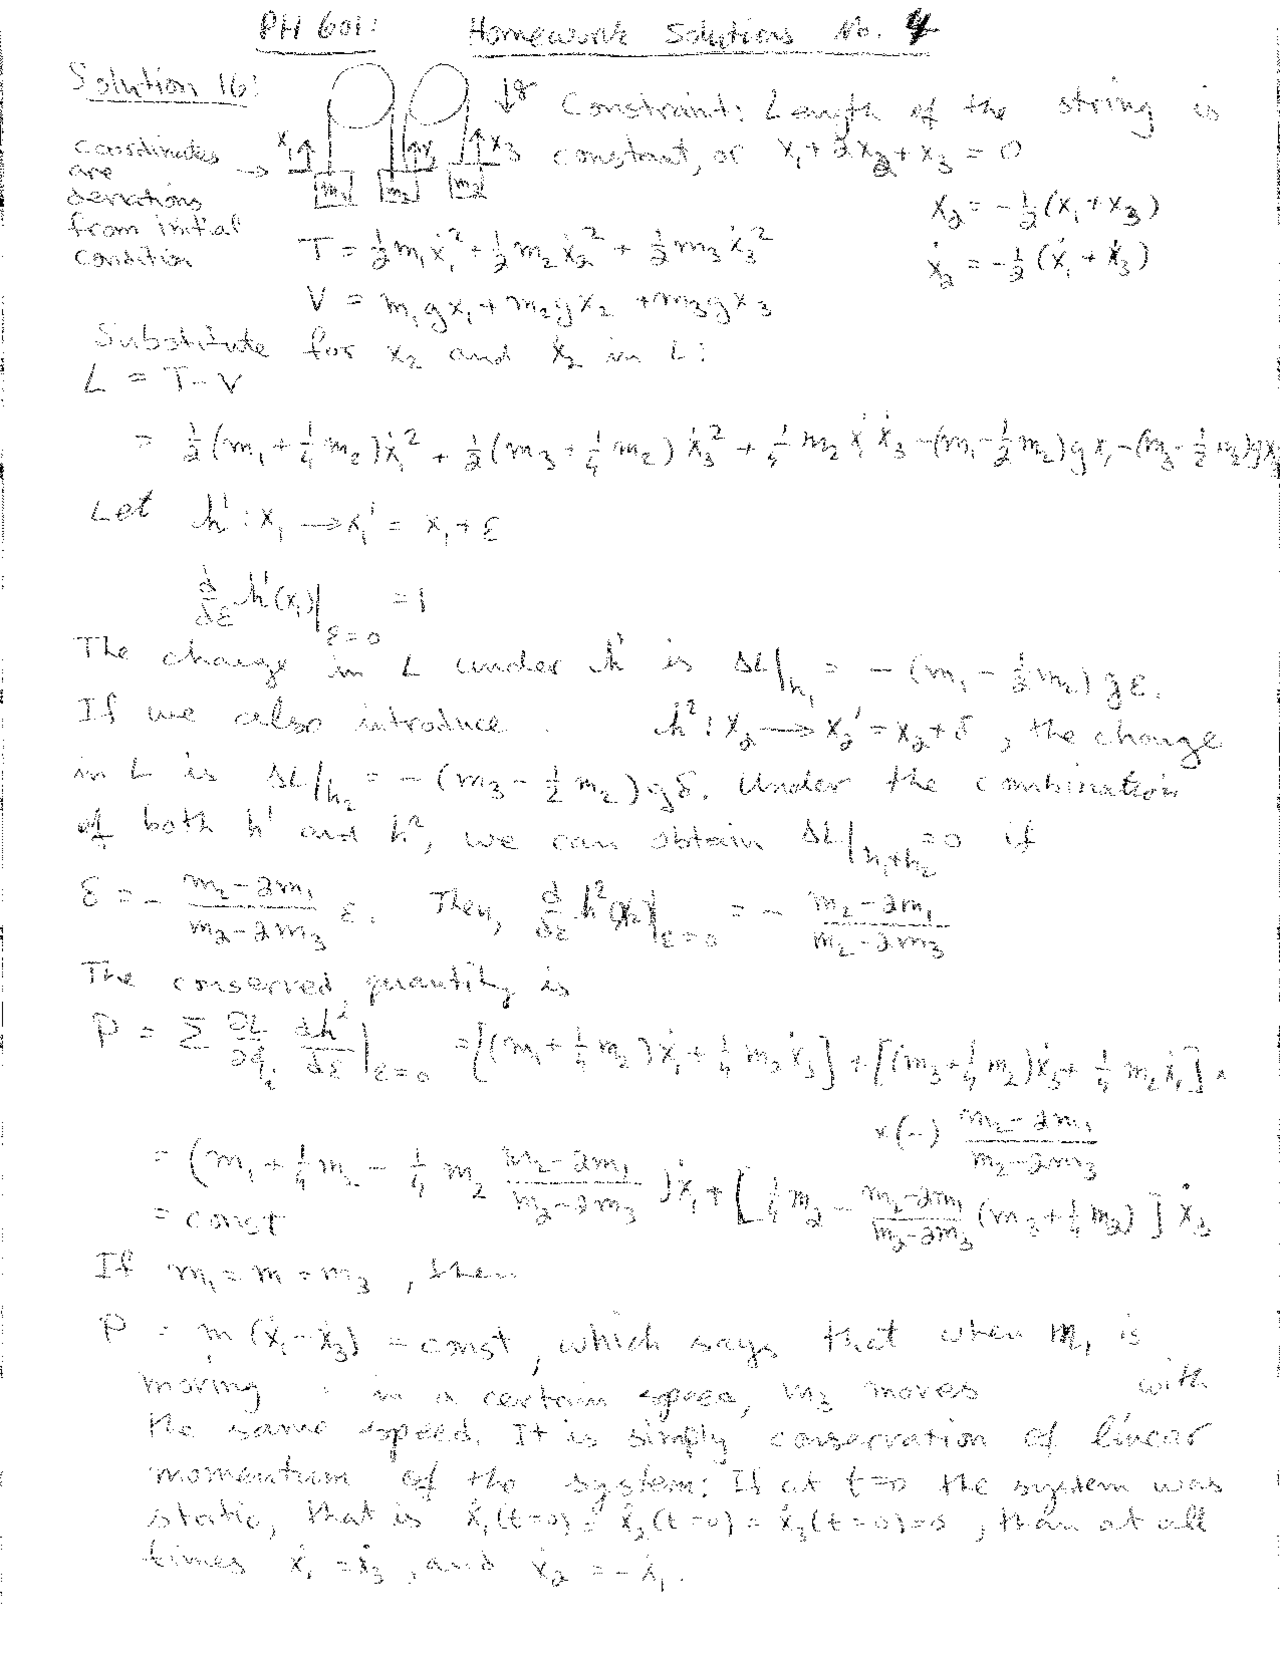 PH 601: Homework Solutions No. 4
Solution 16:
g
Constraint: Length of the string is
constant, or x₁ + 2x₂ + x₃ = 0
coordinates
are
deviations
from initial
condition
x₁ x₃
m₁ m₂ m₂
x₂ = -½(x₁ + x₃)
ẋ₂ = -½(ẋ₁ + ẋ₃)
T = ½m₁ẋ₁² + ½m₂ẋ₂² + ½m₃ẋ₃²
V = m₁gx₁ + m₂gx₂ + m₃gx₃
Substitute for x₂ and ẋ₂ in L:
L = T - V
= ½(m₁ + ¼m₂)ẋ₁² + ½(m₃ + ¼m₂)ẋ₃² + ¼m₂ẋ₁ẋ₃ - (m₁ - ½m₂)gx₁ - (m₃ - ½m₂)gx₃
Let h¹: x₁ → x₁' = x₁ + ε
d/dε h¹(x₁)|ε=0 = 1
The change in L under h¹ is ΔL|h₁ = -(m₁ - ½m₂)gε.
If we also introduce h²: x₃ → x₃' = x₃ + δ, the change
in L is ΔL|h₂ = -(m₃ - ½m₂)gδ. Under the combination
of both h¹ and h², we can obtain ΔL|h₁+h₂ = 0 if
δ = - (m₂-2m₁)/(m₂-2m₃) ε. Then, d/dε h²(x₃)|ε=0 = - (m₂-2m₁)/(m₂-2m₃)
The conserved quantity is
P = Σ ∂L/∂q̇ᵢ dhⁱ/dε|ε=0 = [(m₁ + ¼m₂)ẋ₁ + ¼m₂ẋ₃] + [(m₃ + ¼m₂)ẋ₃ + ¼m₂ẋ₁] ×
×(-) (m₂-2m₁)/(m₂-2m₃)
= (m₁ + ¼m₂ - ¼m₂ (m₂-2m₁)/(m₂-2m₃))ẋ₁ + [¼m₂ - (m₂-2m₁)/(m₂-2m₃) (m₃ + ¼m₂)]ẋ₃
= const
If m₁ = m = m₃, then
P = m(ẋ₁ - ẋ₃) = const, which says that when m₁ is
moving in a certain speed, m₃ moves with
the same speed. It is simply conservation of linear
momentum of the system: If at t=0 the system was
static, that is ẋ₁(t=0) = ẋ₂(t=0) = ẋ₃(t=0) = 0, than at all
times ẋ₁ = ẋ₃, and ẋ₂ = -ẋ₁.